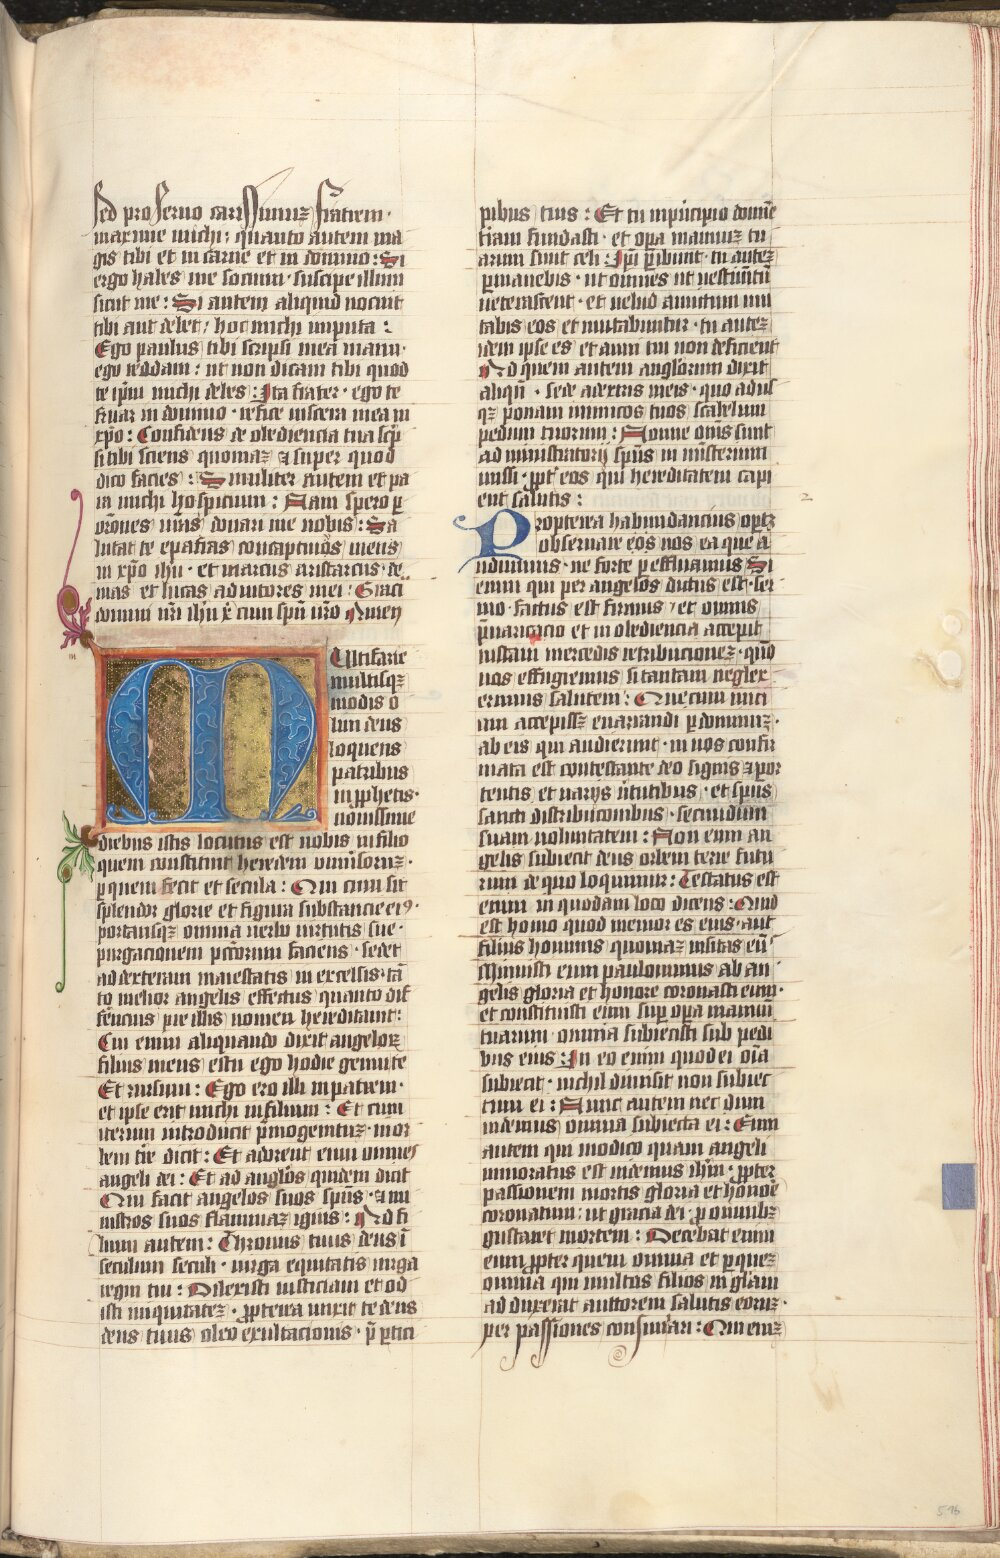 sed pro seruo carissimuz fratrem ·
maxime michi : quanto autem ma
gis tibi et in carne et in domino : Si
ergo habes me socium · suscipe illum
sicut me : Si autem aliquid nocuit
tibi aut debet / hoc michi imputa :
Ego paulus tibi scripsi mea manu ·
ego reddam : ut non dicam tibi quod
te ip̄m michi debes : Ita frater · ego te
fruar in domino · refice uiscera mea in
xp̄o : Confidens de obediencia tua sc̄p
si tibi sciens quoniaz & super quod
dico facies : Similiter autem et pa
ra michi hospicium : Nam spero p̱
or̄ones ur̄as donari me uobis : Sa
lutat te epafras concaptiuus meus
in xp̄o ih̄u · et marcus aristarcus de
mas et lucas adiutores mei : Graci
domini nr̄i ih̄u x̄ cum sp̄u ur̄o Amen
Multifarie
multisqz
modis o
lim deus
loquens
patribus
in ꝓphetis ·
nouissime
diebus istis locutus est nobis in filio
quem constituit heredem uniuersoruz ·
p̱ quem fecit et secula : Qui cum sit
splendor glorie et figura substancie ei9 ·
portansqz omnia uerbo uirtutis sue ·
purgacionem pc̄torum faciens · sedet
ad dexteram maiestatis in excelsis · tā
to melior angelis effectus quanto dif
ferencius pre illis nomen hereditauit :
Cui enim aliquando dixit angeloꝝ
filius meus es tu ego hodie genui te
Et rursum : Ego ero illi in patrem ·
et ipse erit michi in filium : Et cum
iterum introducit p̄mogenituz · in or
bem tr̄e dicit : Et adorent eum omnes
angeli dei : Et ad angl̄os quidem dicit
Qui facit angelos suos sp̄us · & mi
nistros suos flammaz ignis : Ad fi
lium autem : Thronus tuus deus ī
seculum seculi · uirga equitatis uirga
regni tui : Dilexisti iusticiam et od
isti iniquitatez · ꝓpterea unxit te deus
deus tuus oleo exultacionis · p̄ p̱tici
pibus tuis : Et tu in p̄ncipio domine
terram fundasti · et op̱a manuuz tu
arum sunt celi : Ip̄i p̱ibunt · tu autez
p̱manebis · ut omnes ut uestim̄tū
ueterascent · et uelud amictum mu
tabis eos et mutabuntur · tu autez
idem ipse es et anni tui non deficient
Ad quem autem anglorum dixit
aliqn̄ · sede a dextris meis · quo adus
qz ponam inimicos tuos scabellum
pedum tuorum : Nonne om̄s sunt
administratorij sp̄us in mīsterium
missi · ꝓpt̄ eos qui hereditatem capi
ent salutis :
Propterea habundancius op̱tz
obseruare eos nos ea que a
udiuimus · ne forte p̱effluamus Si
enim qui per angelos dictus est · ser
mo · factus est firmus / et omnis
p̄uaricacio et inobediencia accepit
iustam mercedis retribucionez · quō
nos effugiemus si tantam neglex
erimus salutem : Que cum inici
um accepissz enarrandi p̱ dominuz ·
ab eis qui audierunt · in nos confir
mata est contestante deo signis & por
tentis et uarijs u̇tutibus · et sp̄us
sancti distribucionibus · secundum
suam uoluntatem : Non enim an
gelis subiecit deus orbem terre futu
rum de quo loquimur : Testatus est
enim in quodam loco dicens : Quid
est homo quod memor es eius · aut
filius hominis quoniaz uisitas eū
Minuisti eum paulominus ab an
gelis gloria et honore coronasti eum ·
et constituisti eum sup̱ op̱a manuū
tuarum · omnia subiecisti sub pedi
bus eius : In eo enim quod ei oīa
subiecit · nichil dimisit non subiec
tum ei : Nunc autem nec dum
uidemus omnia subiecta ei : Eum
autem qui modico quam angeli
minoratus est uidemus ih̄m · ꝓpter
passionem mortis gloria et honore
coronatum : ut gracia dei · p̱ omnibz
gustaret mortem : Decebat enim
eum ꝓpter quem omnia et p̱ quez
omnia qui multos filios in gl̄iam
adduxerat auttorem salutis eoruz ·
per passiones consum̄ari : Qui emz
2
516